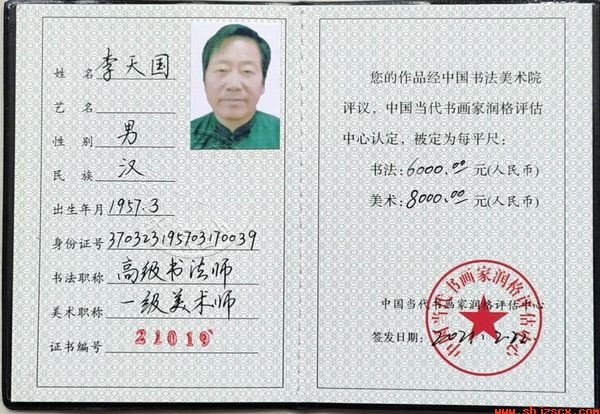 姓 名 李天国
艺 名
性 别 男
民 族 汉
出生年月 1957.3
身份证号 370323195703170039
书法职称 高级书法师
美术职称 一级美术师
证书编号 21019
您的作品经中国书法美术院
评议，中国当代书画家润格评估
中心认定，被定为每平尺：
书法：6000.00 元(人民币)
美术：8000.00 元(人民币)
中国当代书画家润格评估中心
签发日期：2021.2.22.
中国当代书画家润格评估中心
www.shjzscx.com